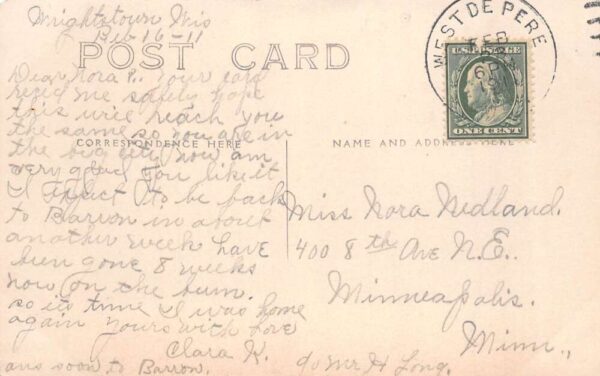 Wrightstown Wis
Feb 16-11
POST CARD
WEST DE PERE
FEB
6 P
U.S. POSTAGE
ONE CENT
CORRESPONDENCE HERE
NAME AND ADDRESS HERE
Dear Nora R. Your card
recd me safely hope
this will reach you
the same so you are in
the big city now am
very glad you like it
I expect to be back
to Barron in about
another week have
been gone 8 weeks
now on the bum.
so its time I was home
again yours with love
Clara K.
ans soon to Barron.
Miss Nora Nedland.
400 8th Ave N.E.
Minneapolis.
Minn.,
c/o Mr H Long.